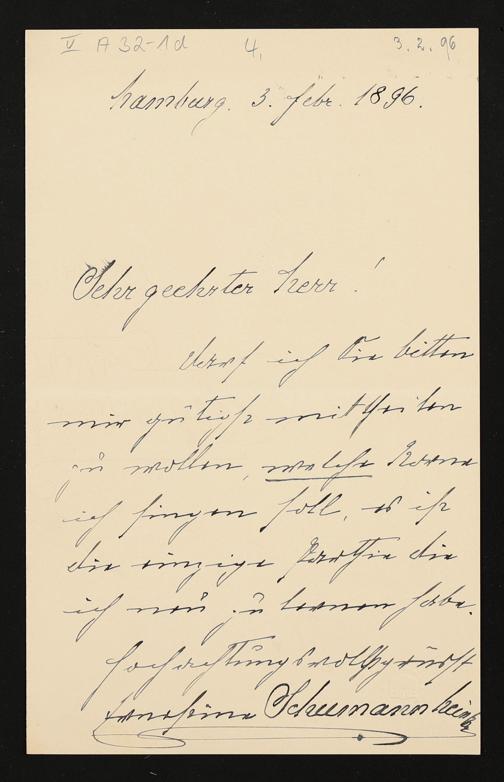 V A 32-1d 4, 3. 2. 96
Hamburg. 3. Febr. 1896.
Sehr geehrter Herr!
Darf ich Sie bitten
mir gütigst mittheilen
zu wollen, welche Norne
ich singen soll, es ist
die einzige Parthie die
ich neu zu lernen habe.
Hochachtungsvollst grüsst
Ernestine Schumann Heink